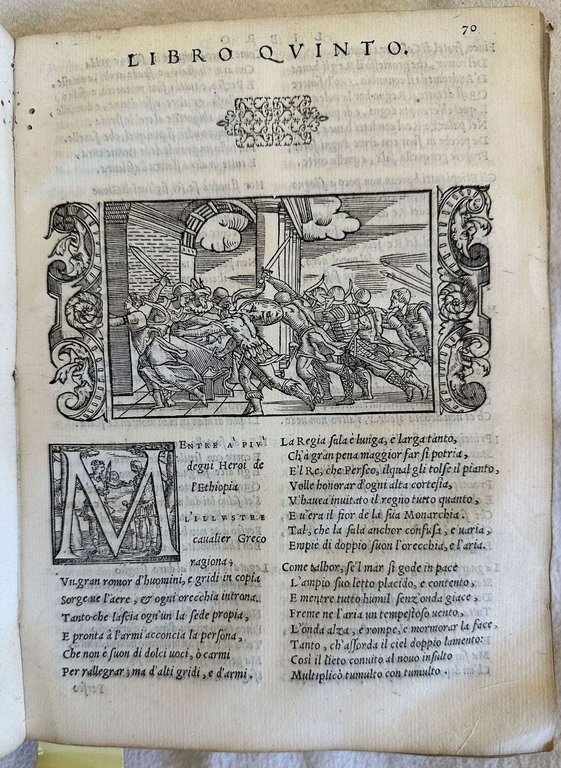 70
LIBRO QVINTO.
MENTRE A' PIV'
degni Heroi de
l'Ethiopia
L'ILLVSTRE
caualier Greco
ragiona;
Vn gran romor d'huomini, e gridi in copia
Sorge ne l'aere, & ogni orecchia introna.
Tanto che lascia ogn'un la sede propia,
E pronta à l'armi acconcia la persona,
Che non è suon di dolci uoci, ò carmi
Per rallegrar; ma d'alti gridi, e d'armi.
Perseo
La Regia sala è lunga, e larga tanto,
Ch'à gran pena maggior far si potria,
E'l Re, che Perseo, ilqual gli tolse il pianto,
Volle honorar d'ogni alta cortesia,
V'hauea inuitato il regno tutto quanto,
E u'era il fior de la sua Monarchia.
Tal, che la sala anchor confusa, e uaria,
Empiè di doppio suon l'orecchia, e l'aria.
Come talhor, se'l mar si gode in pace
L'ampio suo letto placido, e contento,
E mentre tutto humil senz'onda giace,
Freme ne l'aria un tempestoso uento,
L'onda alza, e rompe, e mormorar la face,
Tanto, ch'assorda il ciel doppio lamento:
Così il lieto conuito al nouo insulto
Multiplicò tumulto con tumulto.